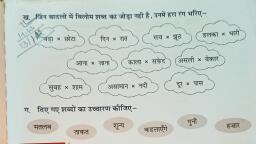 ख. जिन बादलों में विलोम शब्द का जोड़ा नहीं है, उनमें हरा रंग भरिए–
बड़ा × छोटा दिन × रात सच × झूठ हलका × भारी
आना × जाना काला × सफ़ेद असली × बेकार
सुबह × शाम आसमान × नदी दूर × पास
ग. दिए गए शब्दों का उच्चारण कीजिए–
मतलब ताकत शून्य गुनी हजार